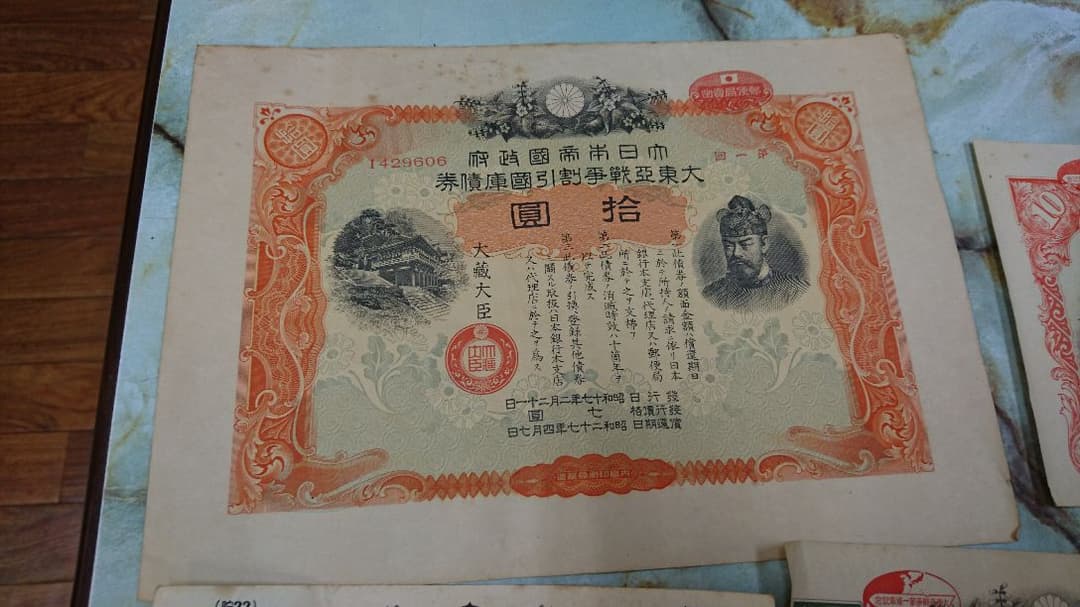 郵便局賣出
第一回
1429606
大日本帝國政府
大東亞戰爭割引國庫債券
拾圓
第一 此債券ノ額面金額ハ償還期日
ニ於テ所持人ノ請求ニ依リ日本
銀行本支店、代理店又ハ郵便局
所ニ於テ之ヲ支拂フ
第二 此債券ノ消滅時效ハ十箇年ヲ
以テ完成ス
第三 此債券ノ引換、登録其他債券
ニ關スル取扱ハ日本銀行本支店
又ハ代理店ニ於テ之ヲ爲ス
大藏大臣
大藏大臣
發行日 昭和十七年二月二十一日
發行價格 七圓
償還期日 昭和二十七年四月七日
內閣印刷局製造
10
(貯22)